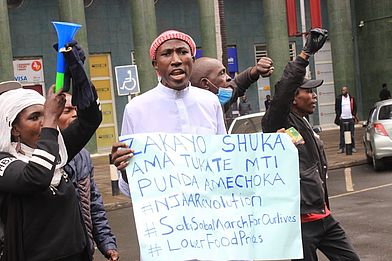 VISA
ZAKAYO SHUKA
AMA TUKATE MTI
PUNDA AMECHOKA
#NJAARevolution
#SabaSabaMarchForOurLives
#LowerFoodPrices